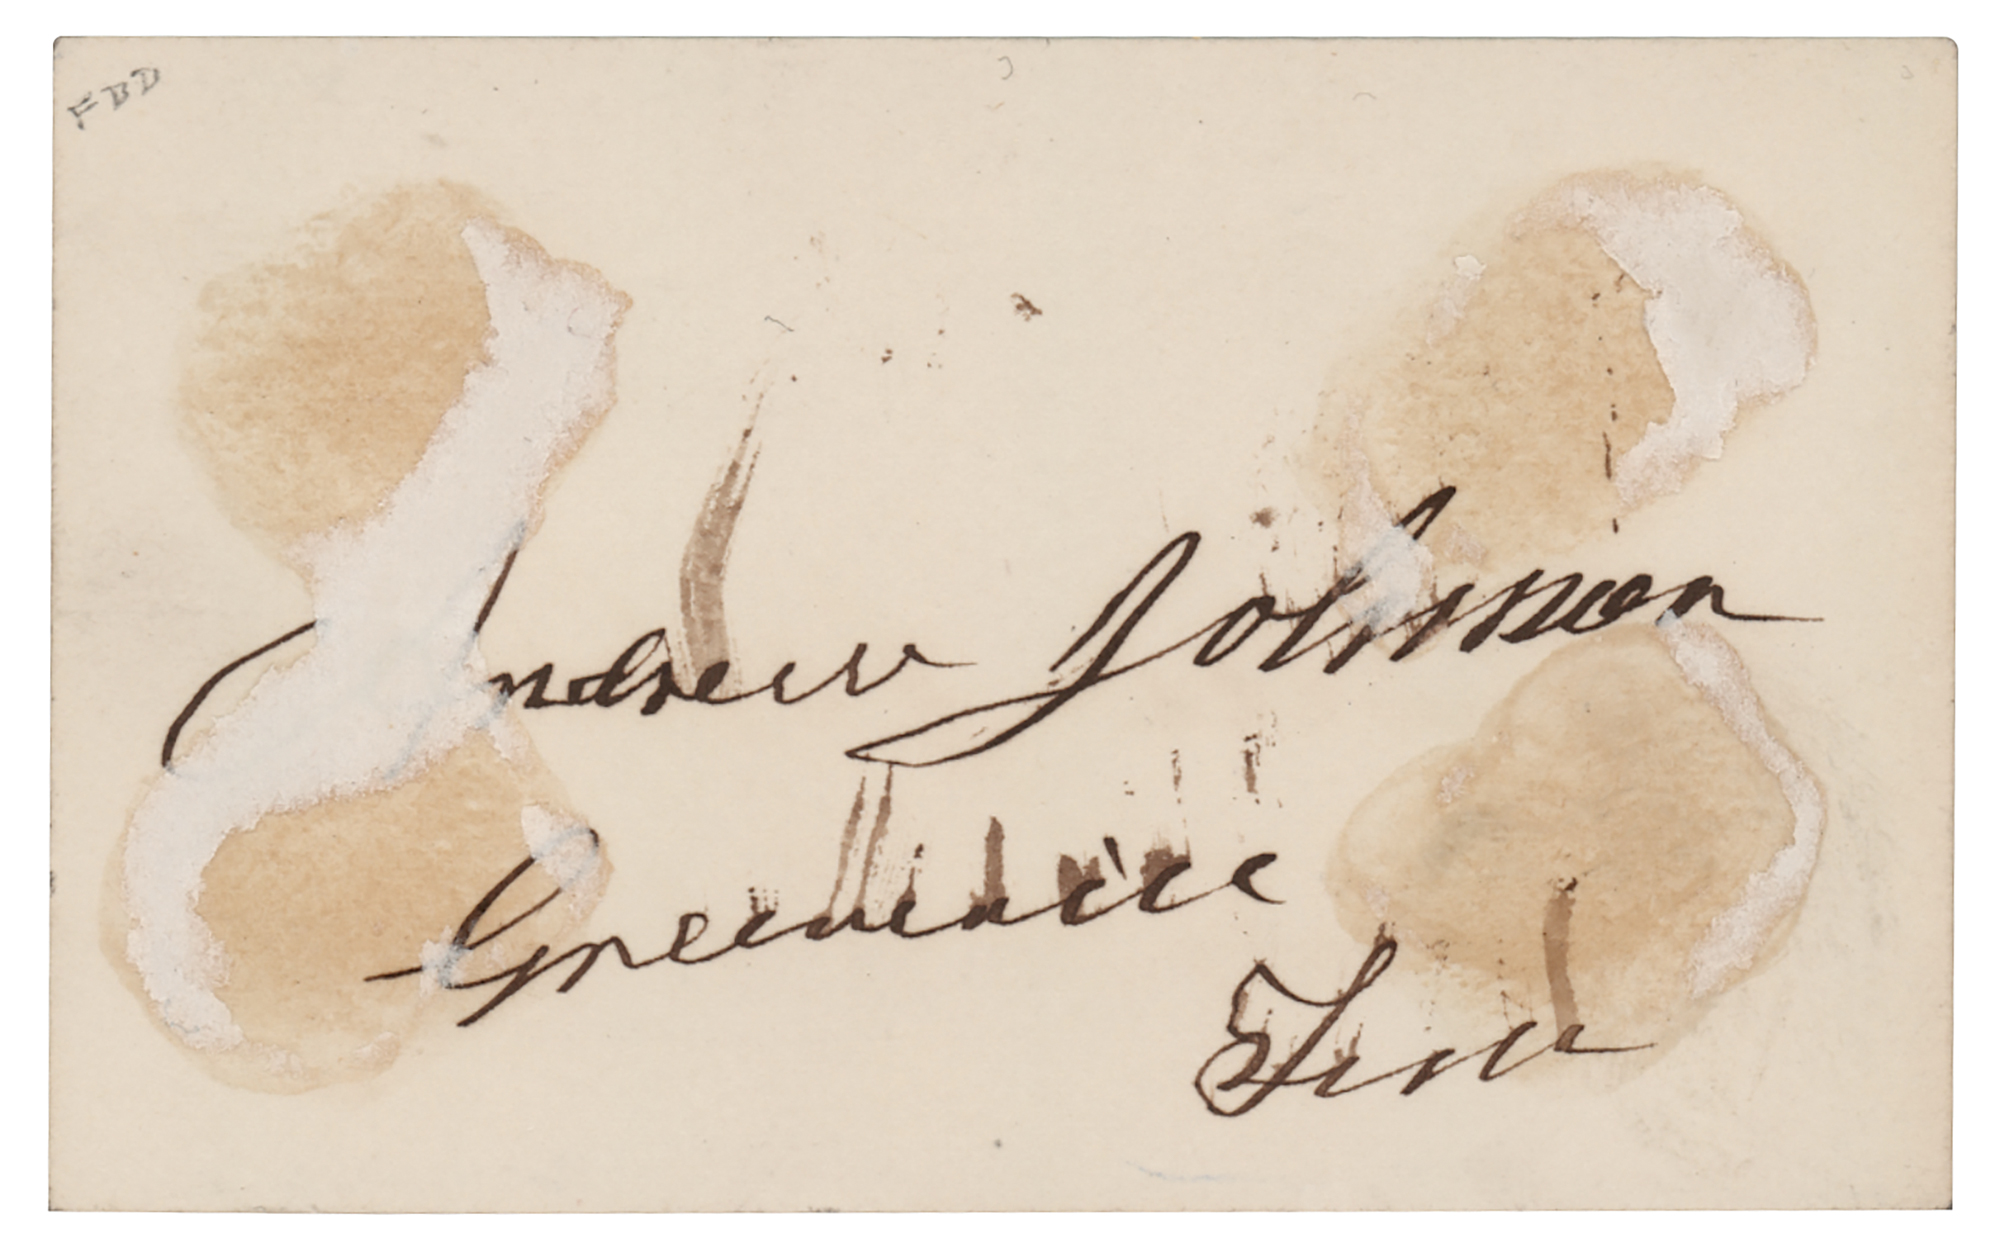 FBD
Andrew Johnson
Greeneville
Tenn